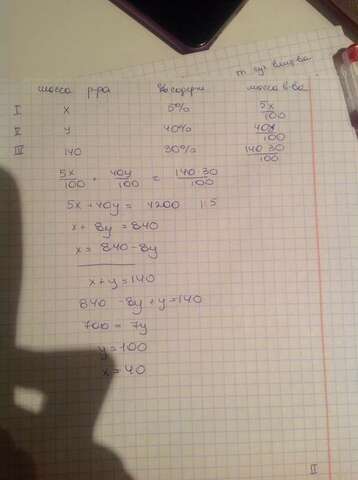 m сух в-ва
масса р-ра % содерж масса в-ва
I x 5% 5x/100
II y 40% 40y/100
III 140 30% 140·30/100
5x/100 + 40y/100 = 140·30/100
5x + 40y = 4200 | :5
x + 8y = 840
x = 840 - 8y
x + y = 140
840 - 8y + y = 140
700 = 7y
y = 100
x = 40
II